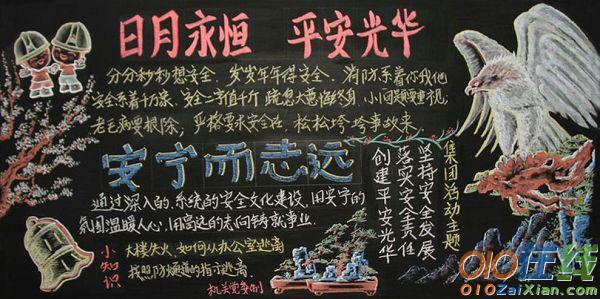 日月永恒 平安光华
分分秒秒想安全、岁岁年年得安全、消防系着你我他
安全系着千万家、安全二字值千斤 疏忽大意悔终身、小问题要重视
老毛病要根除，严格要求安全在 松松垮垮事故来
安宁而志远
通过深入的、系统的安全文化建设、用安宁的
氛围温暖人心，用高远的志向铸就事业
小知识
大楼失火，如何从办公室逃离
找照防烟道的指示逃离
机关党委制
集团活动主题
坚持安全发展
落实安全责任
创建平安光华
010在线
010ZaiXian.com